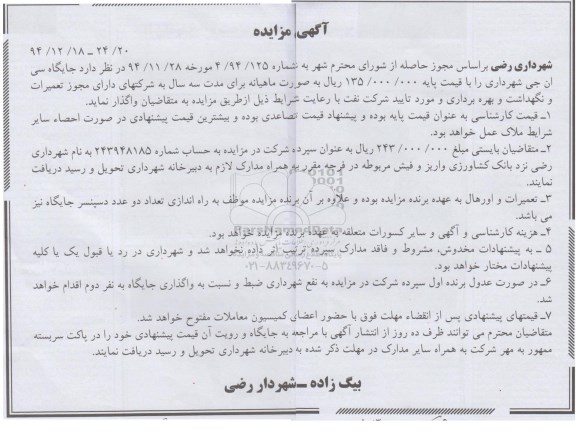 آگهی مزایده
۹۴/ ۱۲/ ۱۸ ـ ۲۴/ ۲۰
شهرداری رضی براساس مجوز حاصله از شورای محترم شهر به شماره ۱۲۵/ ۹۴/ ۴ مورخه ۲۸/ ۱۱/ ۹۴ در نظر دارد جایگاه سی
ان جی شهرداری را با قیمت پایه ۰۰۰/ ۰۰۰/ ۱۳۵ ریال به صورت ماهیانه برای مدت سه سال به شرکتهای دارای مجوز تعمیرات
و نگهداشت و بهره برداری و مورد تایید شرکت نفت با رعایت شرایط ذیل ازطریق مزایده به متقاضیان واگذار نماید.
۱ـ قیمت کارشناسی به عنوان قیمت پایه بوده و پیشنهاد قیمت تصاعدی بوده و بیشترین قیمت پیشنهادی در صورت احصاء سایر
شرایط ملاک عمل خواهد بود.
۲ـ متقاضیان بایستی مبلغ ۰۰۰/ ۰۰۰/ ۲۴۳ ریال به عنوان سپرده شرکت در مزایده به حساب شماره ۲۴۳۹۴۸۱۸۵ به نام شهرداری
رضی نزد بانک کشاورزی واریز و فیش مربوطه در فرجه مقرر به همراه مدارک لازم به دبیرخانه شهرداری تحویل و رسید دریافت
نمایند.
۳ـ تعمیرات و اورهال به عهده برنده مزایده بوده و علاوه بر آن برنده مزایده موظف به راه اندازی تعداد دو عدد دسپنسر جایگاه نیز
می باشد.
۴ـ هزینه کارشناسی و آگهی و سایر کسورات متعلقه به عهده برنده مزایده خواهد بود.
۵ ـ به پیشنهادات مخدوش، مشروط و فاقد مدارک سپرده ترتیب اثر داده نخواهد شد و شهرداری در رد یا قبول یک یا کلیه
پیشنهادات مختار خواهد بود.
۰۲۱-۸۸۳۴۹۶۷۰-۵
۶ـ در صورت عدول برنده اول سپرده شرکت در مزایده به نفع شهرداری ضبط و نسبت به واگذاری جایگاه به نفر دوم اقدام خواهد
شد.
۷ـ قیمتهای پیشنهادی پس از انقضاء مهلت فوق با حضور اعضای کمیسیون معاملات مفتوح خواهد شد.
متقاضیان محترم می توانند ظرف ده روز از انتشار آگهی با مراجعه به جایگاه و رویت آن قیمت پیشنهادی خود را در پاکت سربسته
ممهور به مهر شرکت به همراه سایر مدارک در مهلت ذکر شده به دبیرخانه شهرداری تحویل و رسید دریافت نمایند.
بیگ زاده ـ شهردار رضی